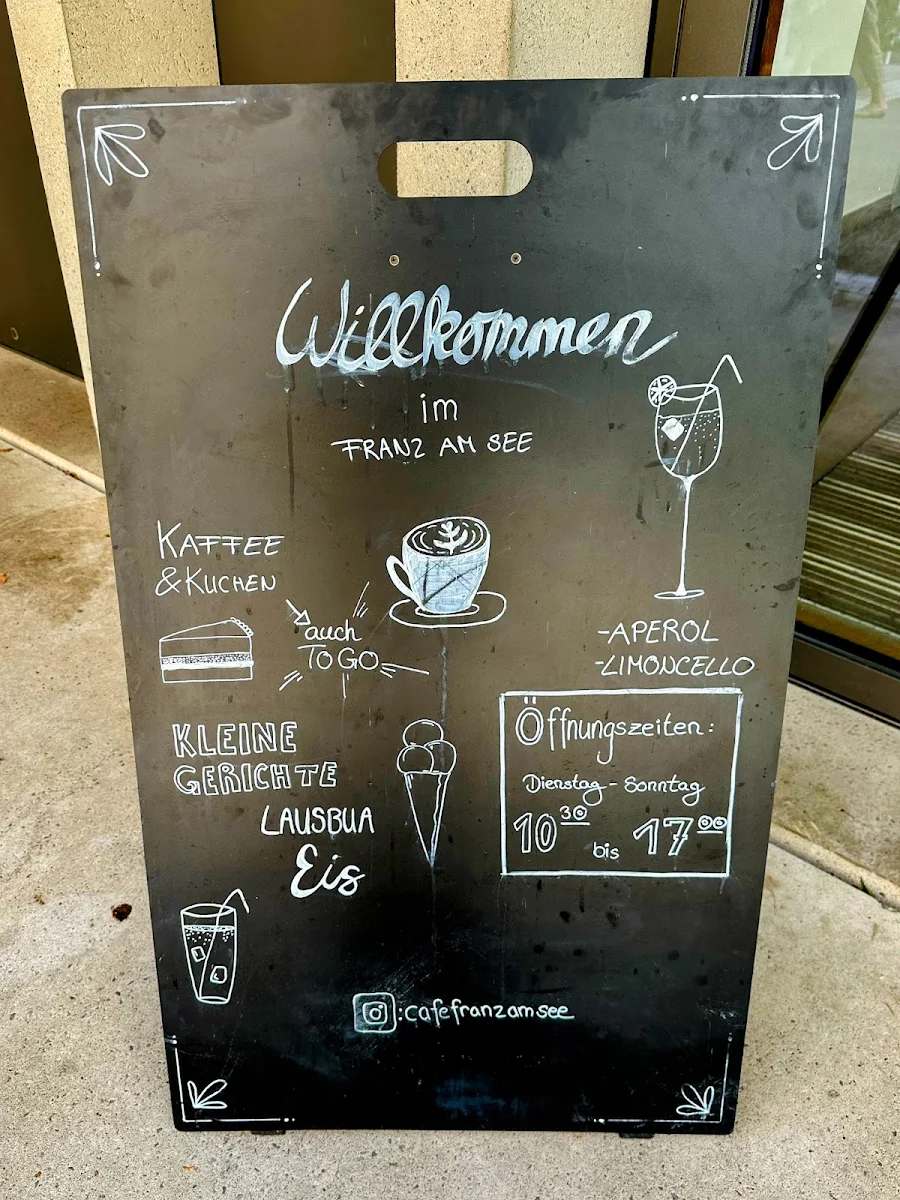 Willkommen
im
FRANZ AM SEE
KAFFEE
& KUCHEN
auch
TO GO
-APEROL
-LIMONCELLO
KLEINE
GERICHTE
LAUSBUA
Eis
Öffnungszeiten:
Dienstag - Sonntag
10³⁰ bis 17⁰⁰
:cafefranzamsee